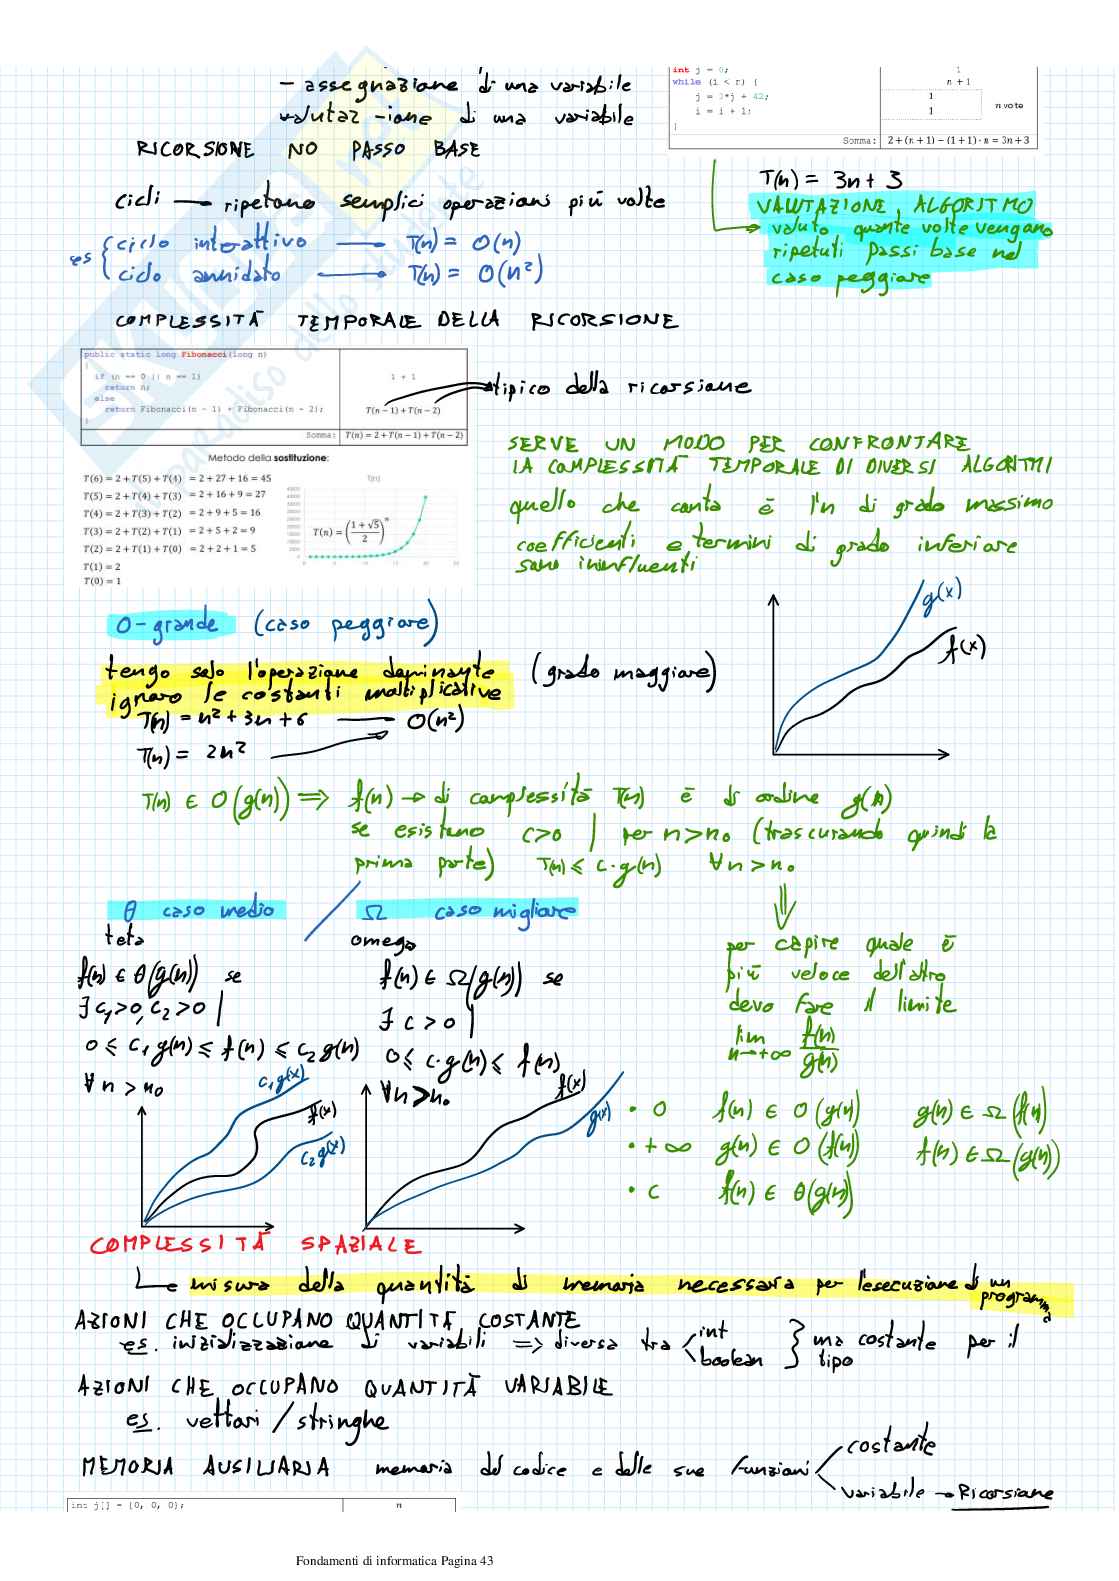 - assegnazione di una variabile
valutaz -ione di una variabile
RICORSIONE NO PASSO BASE
int j = 0;
1
while (i < n) {
n + 1
j = j*j + 42;
1
i = i + 1;
1
n volte
}
Somma:
2 + (n + 1) − (1 + 1) · n = 3n + 3
T(n) = 3n + 3
VALUTAZIONE ALGORITMO
valuto quante volte vengano
ripetuti passi base nel
caso peggiore
cicli → ripetono semplici operazioni più volte
es { ciclo interattivo → T(n) = O(n)
ciclo annidato → T(n) = O(n²)
COMPLESSITÀ TEMPORALE DELLA RICORSIONE
public static long Fibonacci(long n)
{
if (n == 0 || n == 1)
1 + 1
return n;
else
return Fibonacci(n - 1) + Fibonacci(n - 2);
T(n − 1) + T(n − 2)
}
Somma:
T(n) = 2 + T(n − 1) + T(n − 2)
tipico della ricorsione
Metodo della sostituzione:
T(6) = 2 + T(5) + T(4) = 2 + 27 + 16 = 45
T(5) = 2 + T(4) + T(3) = 2 + 16 + 9 = 27
T(4) = 2 + T(3) + T(2) = 2 + 9 + 5 = 16
T(3) = 2 + T(2) + T(1) = 2 + 5 + 2 = 9
T(2) = 2 + T(1) + T(0) = 2 + 2 + 1 = 5
T(1) = 2
T(0) = 1
T(n)
T(n) = ((1 + √5)/2)ⁿ
SERVE UN MODO PER CONFRONTARE
LA COMPLESSITÀ TEMPORALE DI DIVERSI ALGORITMI
quello che conta è l'n di grado massimo
coefficienti e termini di grado inferiore
sono ininfluenti
O-grande (caso peggiore)
tengo solo l'operazione dominante (grado maggiore)
ignoro le costanti moltiplicative
T(n) = n² + 3n + 6 → O(n²)
T(n) = 2n²
g(x)
f(x)
T(n) ∈ O(g(n)) ⇒ f(n) → di complessità T(n) è di ordine g(n)
se esistono c>0 | per n>n₀ (trascurando quindi la
prima parte) T(n) ≤ c·g(n) ∀n>n₀
θ caso medio / Ω caso migliore
teta
omega
f(n) ∈ θ(g(n)) se
∃ c₁>0, c₂>0 |
0 ≤ c₁g(n) ≤ f(n) ≤ c₂g(n)
∀n>n₀
f(n) ∈ Ω(g(n)) se
∃ c>0 |
0 ≤ c·g(n) ≤ f(n)
∀n>n₀
per capire quale è
più veloce dell'altro
devo fare il limite
lim n→+∞ f(n)/g(n)
c₁g(x)
f(x)
c₂g(x)
f(x)
g(x)
• 0 f(n) ∈ O(g(n)) g(n) ∈ Ω(f(n))
• +∞ g(n) ∈ O(f(n)) f(n) ∈ Ω(g(n))
• c f(n) ∈ θ(g(n))
COMPLESSITÀ SPAZIALE
↳ misura della quantità di memoria necessaria per l'esecuzione di un programma
AZIONI CHE OCCUPANO QUANTITÀ COSTANTE
es. inizializzazione di variabili ⇒ diversa tra < int boolean } ma costante per il tipo
AZIONI CHE OCCUPANO QUANTITÀ VARIABILE
es. vettori / stringhe
MEMORIA AUSILIARIA memoria del codice e delle sue funzioni < costante
variabile → Ricorsione
int j[] = {0, 0, 0};
n
Fondamenti di informatica Pagina 43